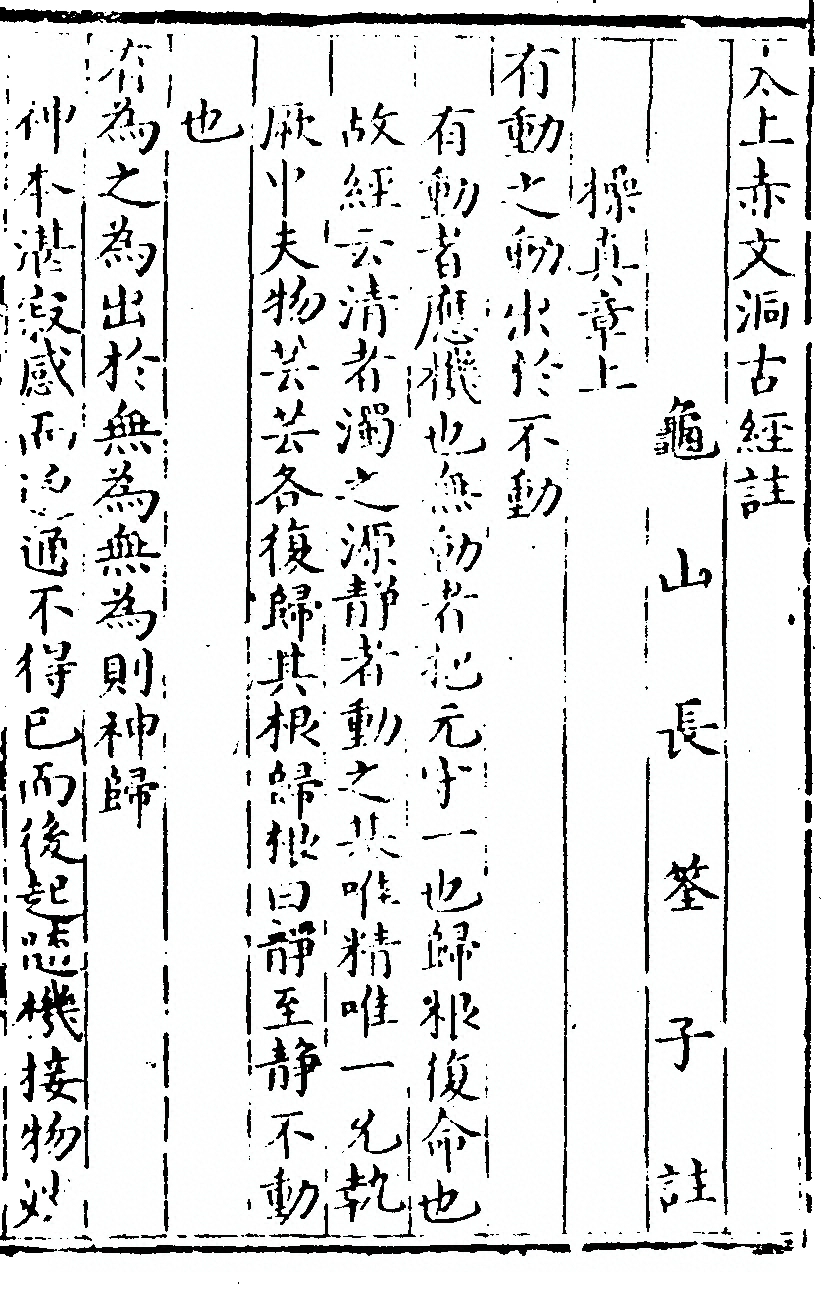 太上赤文洞古經註
龜山長筌子註
操真章上
有動之動出於不動
有動者應機也無動者抱元守一也歸根復命也
故經云清者濁之源靜者動之基唯精唯一允執
厥中夫物芸芸各復歸其根歸根曰靜至靜不動
也
有為之為出於無為無為則神歸
神本湛寂感而遂通不得已而後起隨機接物